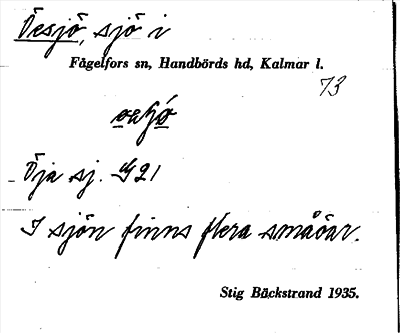 Öesjö, sjö i
Fågelfors sn, Handbörds hd, Kalmar l.
73
Öja sj. G21
I sjön finns flera småöar.
Stig Bäckstrand 1935.